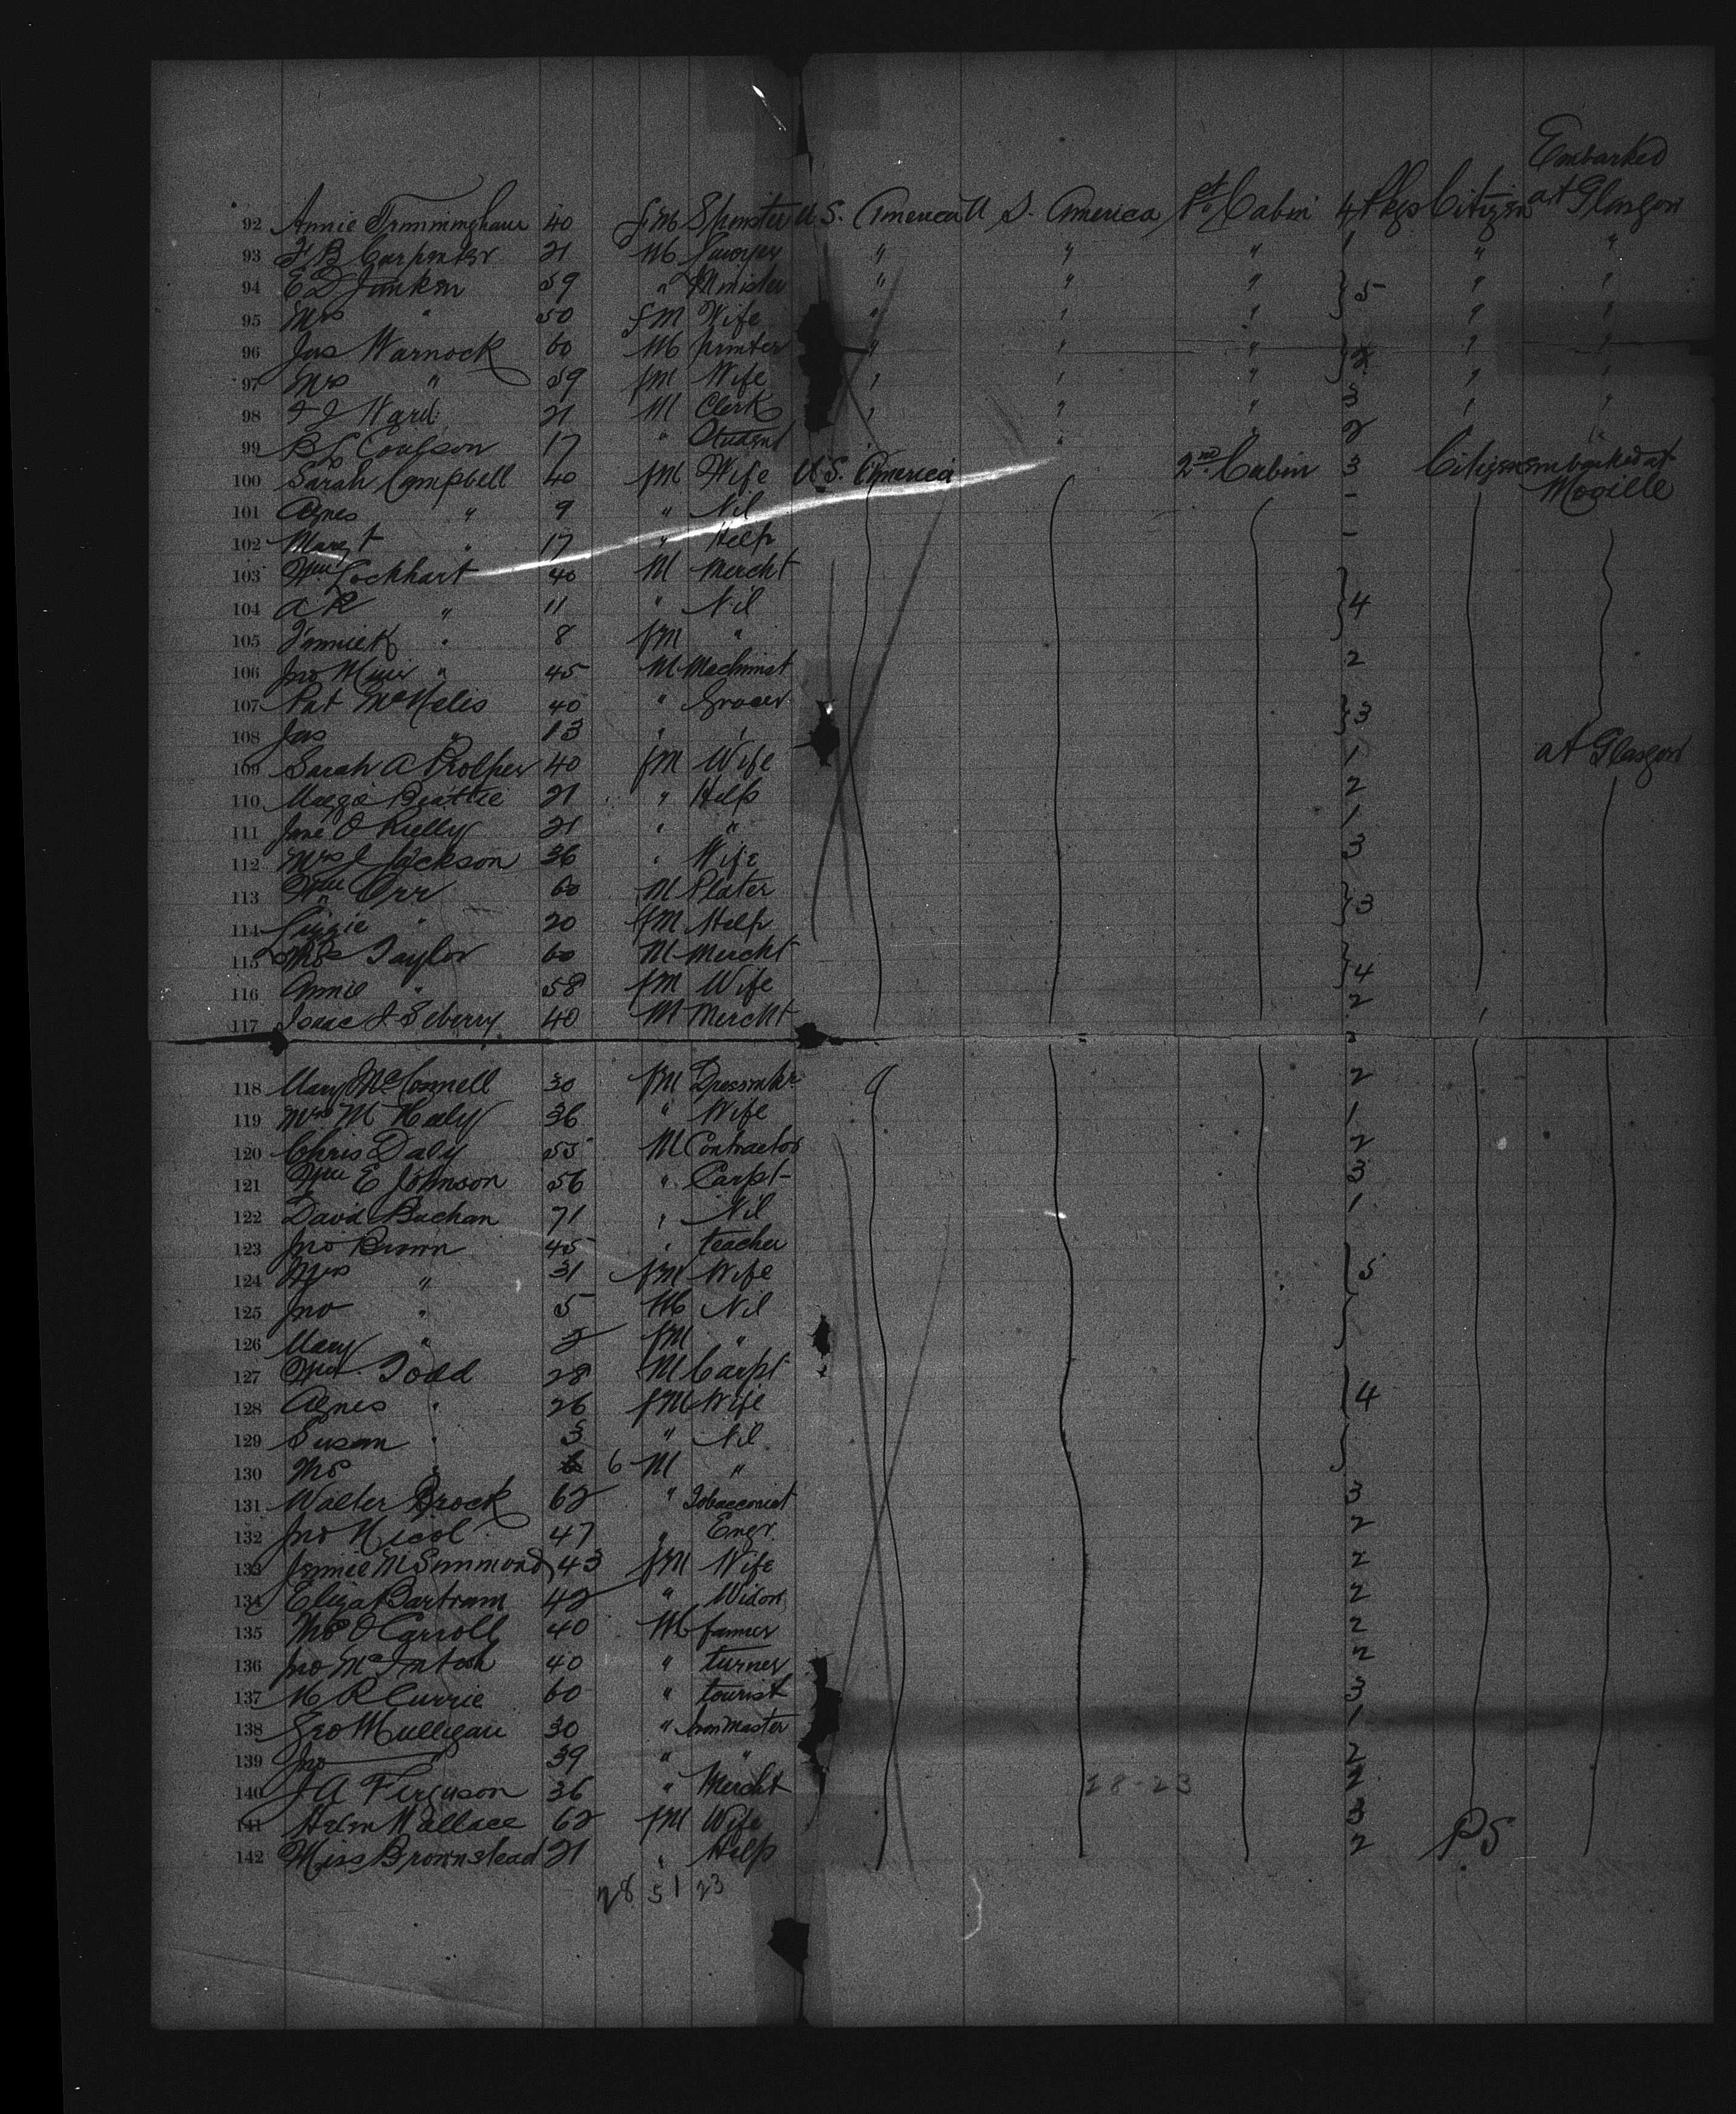 Embarked
92 Annie Trimmingham 40 fM Spinster U S. America U S. America 1st Cabin 4 Pkgs Citizen at Glasgow
93 F B Carpenter 21 M Lawyer " " " 1 " "
94 E D Junkin 59 " Minister " " " } 5 " "
95 Mrs " 50 fM Wife " " " " "
96 Jas Warnock 60 M printer " " " } 2 " "
97 Mrs " 59 fM Wife " " " " "
98 F J Ward 21 M Clerk " " " 3 " "
99 B L Coulson 17 " Student " " 2 "
100 Sarah Campbell 40 fM Wife U.S. America 2nd Cabin 3 Citizen embarked at
Moville
101 Agnes " 9 " Nil -
102 Margt " 17 " Help -
103 Wm Lockhart 40 M Mercht
104 A R " 11 " Nil } 4
105 " 8 fM "
106 Jno Muir " 45 M Machinist 2
107 Pat McNelis 40 " Grocer } 3
108 Jas " 13 " "
109 Sarah A 40 fM Wife 1 at Glasgow
110 Maggie Beattie 21 " Help 2
111 Jane O Rielly 21 " " 1
112 Mrs J Jackson 36 " Wife 3
113 Wm Orr 60 M Plater } 3
114 Lizzie " 20 fM Help
115 Thos Taylor 60 M Mercht } 4
116 Annie " 58 fM Wife
117 Isaac J Seberry 40 M Mercht 2
118 Mary McConnell 30 fM Dressmkr 2
119 Mrs M Healy 36 " Wife 1
120 Chris Daly 55 M Contractor 2
121 Wm E Johnson 56 " Carpt 3
122 David Buchan 71 " Nil 1
123 Jno Brown 45 " teacher
124 Mrs " 31 fM Wife } 5
125 Jno " 5 M Nil
126 Mary " 2 fM "
127 Wm Todd 28 M Carpt
128 Agnes " 26 fM Wife } 4
129 Susan " 3 " Nil
130 Thos " 6 M "
131 Walter Brock 62 " Tobacconist 3
132 Jno Nicol 47 " Engr 2
133 Jennie M Simmonds 43 fM Wife 2
134 Eliza Bartram 42 " Widow 2
135 Thos O Carroll 40 M farmer 2
136 Jno McIntosh 40 " turner 2
137 M R Currie 60 " tourist 3
138 Geo Mulligan 30 " Ironmaster 1
139 Jno " 39 " " 2
140 J A Ferguson 36 " Mercht 28-23 2
141 Helen Wallace 62 fM Wife 3
142 Miss Brownslead 21 " Help 2 P S
28 51 23